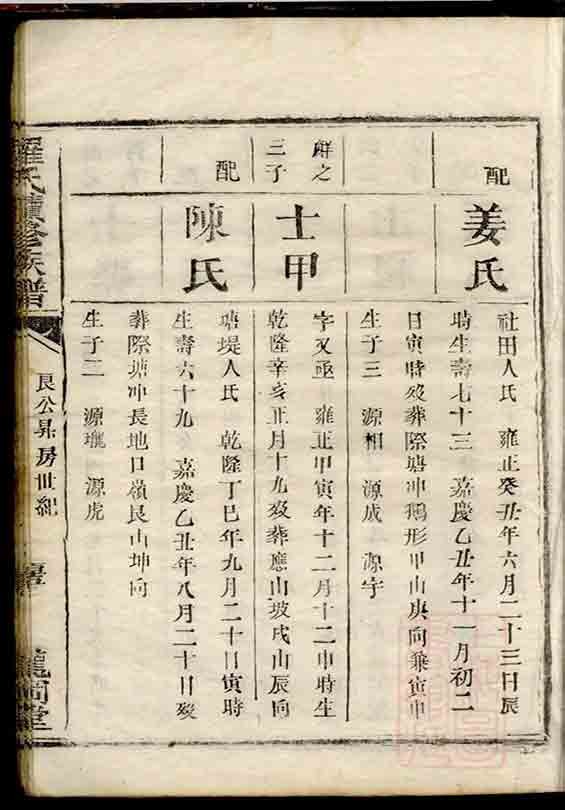 配
姜氏
社田人氏　雍正癸丑年六月二十三日辰
時生壽七十三　嘉慶乙丑年十一月初二
日寅時歿葬際塘冲鵝形甲山庚向兼寅申
生子三　源相　源成　源宇
士甲
之
三子
字又亟　雍正甲寅年十二月十二申時生
乾隆辛亥正月十九歿葬應山坡戌山辰向
配
陳氏
塘堤人氏　乾隆丁巳年九月二十日寅時
生壽六十九　嘉慶乙丑年八月二十日歿
葬際塘冲長地口嶺艮山坤向
生子二　源瓏　源虎
羅氏續修族譜
良公昇房世紀